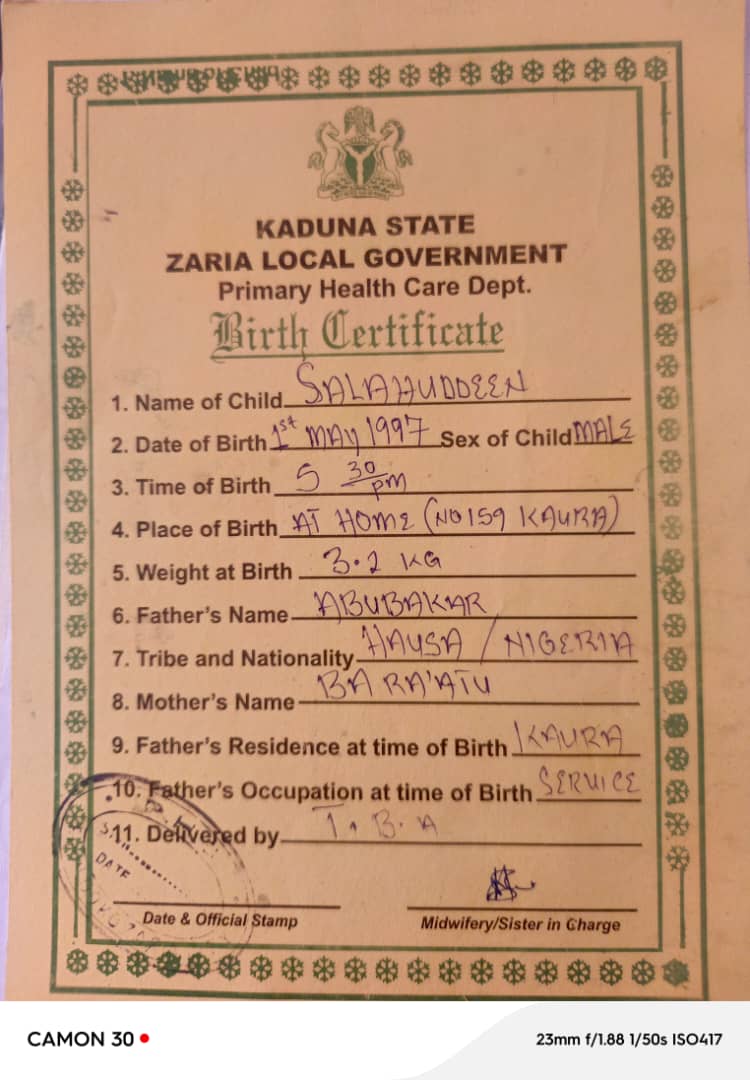 KADUNA STATE
ZARIA LOCAL GOVERNMENT
Primary Health Care Dept.
Birth Certificate
1. Name of Child SALAHUDDEEN
2. Date of Birth 1st MAY 1997 Sex of Child MALE
3. Time of Birth 5 30 pm
4. Place of Birth AT HOME (NO 159 KAURA)
5. Weight at Birth 3.2 KG
6. Father's Name ABUBAKAR
7. Tribe and Nationality HAUSA / NIGERIA
8. Mother's Name BARA'ATU
9. Father's Residence at time of Birth KAURA
10. Father's Occupation at time of Birth SERVICE
11. Delivered by T.B.A
DATE
Date & Official Stamp Midwifery/Sister in Charge
CAMON 30 23mm f/1.88 1/50s ISO417